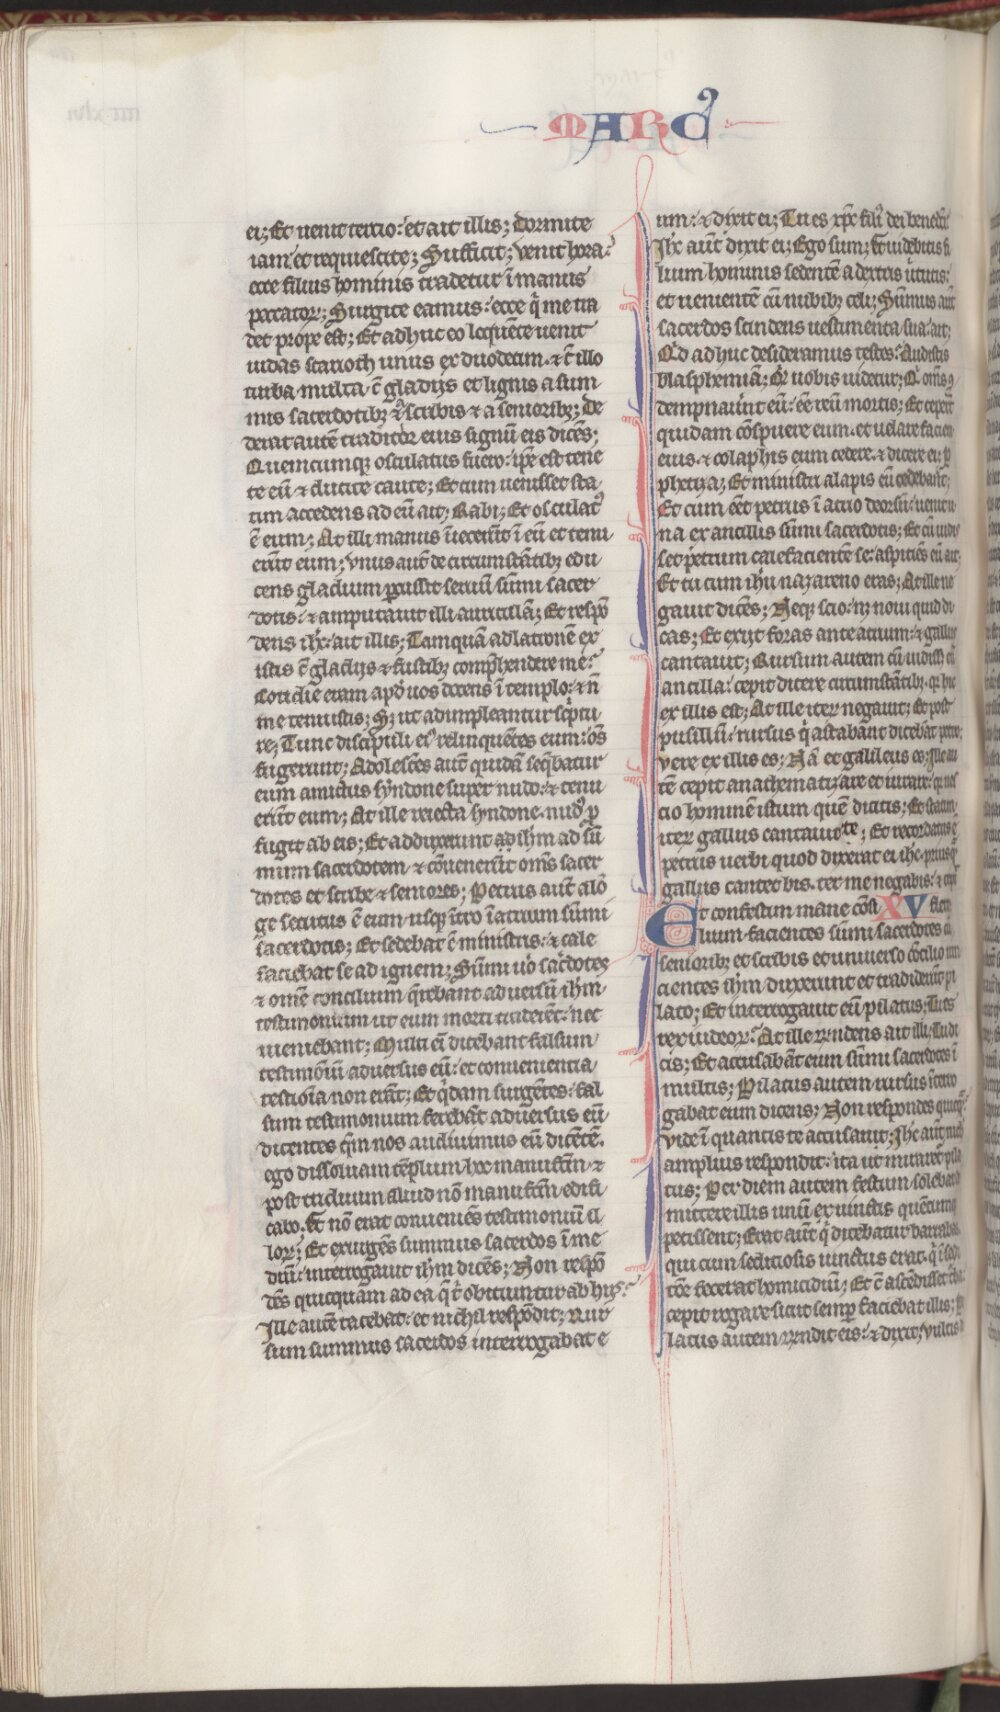 MARC᾽
ei; Et uenit tercio: et ait illis; Dormite
iam et requiescite; Sufficit; venit hora:
ecce filius hominis tradetur ī manus
peccatoꝝ; Surgite eamus: ecce q̄ me tra
det prope est; Et adhuc eo loquēte uenit
iudas scarioth unus ex duodecim. ⁊ cū illo
turba multa. c̄ gladijs et lignis a sum
mis sacerdotibꝫ ⁊ a scribis ⁊ a senioribꝫ; De
derat autē traditor eius signū eis dicēs;
Quemcumqꝫ osculatus fuero: ipse est tene
te eū ⁊ ducite caute; Et cum uenisset sta
tim accedens ad eū ait; Rabi; Et osculatꝰ
ē eum; At illi manus īiecerūt ī eū et tenu
erūt eum; Vnus autē de circumstātibꝫ edu
cens gladium ꝑcussit seruū sūmi sacer
dotis: ⁊ amputauit illi auriculā; Et respō
dens ihc̄: ait illis; Tamquā ad latronē ex
istis c̄ gladijs ⁊ fustibꝫ comp̄hendere me:
Cotidie eram apđ uos docens ī templo: ⁊ n̄
me tenuistis; Sꝫ ut adimpleantur sc̄ptu
re; Tunc discipuli eiꝰ relinquētes eum: om̄s
fugerunt; Adolescēs autē quidā seq̄batur
eum amictus syndone super nudo: ⁊ tenu
erūt eum; At ille reiecta syndone. nudꝰ ꝓ
fugit ab eis; Et adduxerunt ad ihm̄ ad sū
mum sacerdotem ⁊ cōuenerūt om̄s sacer
dotes et scribe ⁊ seniores; Petrus autē a lō
ge secutus ē eum usqꝫ ītro ī atrium sūmi
sacerdotis; Et sedebat c̄ ministris: ⁊ cale
faciebat se ad ignem; Sūmi uo sac̄dotes
⁊ omē concilium q̄rebant aduersū ihm̄
testimonium ut eum morti traderēt: nec
inueniebant; Multi eī dicebant falsum
testimōiū aduersus eū: et conuenientia
testiōīa non erāt; Et q̄dam surgētes: fal
sum testimonium ferebāt aduersus eū
dicentes qm̄ nos audiuimus eū dicētē.
ego dissoluam tēplum hoc manufctm̄ ⁊
post triduum aliud nō manufctm̄ edifi
cabo. Et nō erat conueniēs testimoniū il
loꝝ; Et exurgēs summus sacerdos ī me
diū: interrogauit ihm̄ dicēs; Non respō
dēs quicquam ad ea q̄ t̄ obiciuntur ab hijs:
Ille autē tacebat: et nichil respōdit; Rur
sum summus sacerdos interrogabat e
um: ⁊ dixit ei; Tu es xp̄c filiꝰ dei benedc̄i
Ihc̄ autē dixit ei; Ego sum; Et uidebitis fi
lium hominis sedentē a dextris ūtutis:
et uenientē cū nubibꝫ celi; Sūmus autē
sacerdos scindens uestimenta sua: ait;
Qđ adhuc desideramus testes: Audistis
blasphemiā; Q̇ uobis uidetur; Q̇ om̄s ꝯ
dempnauer̄t eū: eē reū mortis; Et ceperūt
quidam cōspuere eum. et uelare faciem
eius. ⁊ colaphis eum cedere. ⁊ dicere ei; ꝓ
phetiza; Et ministri alapis eū cedebāt;
Et cum eēt petrus ī atrio deorsū: uenit u
na ex ancillis sūmi sacerdotis; Et cū uidis
set petrum calefacientē se: aspiciēs eū ait;
Et tu cum ihū nazareno eras; At ille ne
gauit dicēs; Neqꝫ scio: nꝫ noui quid di
cas; Et exijt foras ante atrium: ⁊ gallus
cantauit; Rursum autem cū uidissꝫ eū
ancilla: cepit dicere circumstātibꝫ. qꝛ hic
ex illis est; At ille iteꝝ negauit; Et post
pusillū: rursus q̄ astabāt dicebāt petro;
vere ex illis es; Nā et galileus es; Ille au
tē cepit anathematizare et iurare: qꝛ nes
cio hominē istum quē dicitis; Et statim
iteꝝ gallus cantauit; Et recordatus ē
petrus uerbi quod dixerat ei ihc̄. priusqͣ
gallus cantet bis. ter me negabis: ⁊ cepit
Et confestim mane cōsi XV flere
lium. facientes sūmi sacerdotes cū
senioribꝫ et scribis et uniuerso cōcilio uin
cientes ihm̄ duxerunt et tradiderūt pi
lato; Et interrogauit eū pilatus; Tu es
rex iudeoꝝ: At ille rn̄dens ait illi; Tu di
cis; Et accusabāt eum sūmi sacerdotes ī
multis; Pilatus autem rursus īterro
gabat eum dicens; Non respondes quicqͣ:
vide ī quantis te accusant; Ihc̄ autē nich
amplius respondit: ita ut miraret̄ pila
tus; Per diem autem festum solebat
mittere illis unū ex uinctis quēcumqꝫ
petissent; Erat autē q̄ dicebatur barrabas
qui cum sediciosis uinctus erat. q̄ ī sedi
tōe fecerat homicidiū; Et c̄ ascēdisset t̄ba:
cepit rogare sicut semꝑ faciebat illis; Pi
latus autem rn̄dit eis: ⁊ dixit; vultis